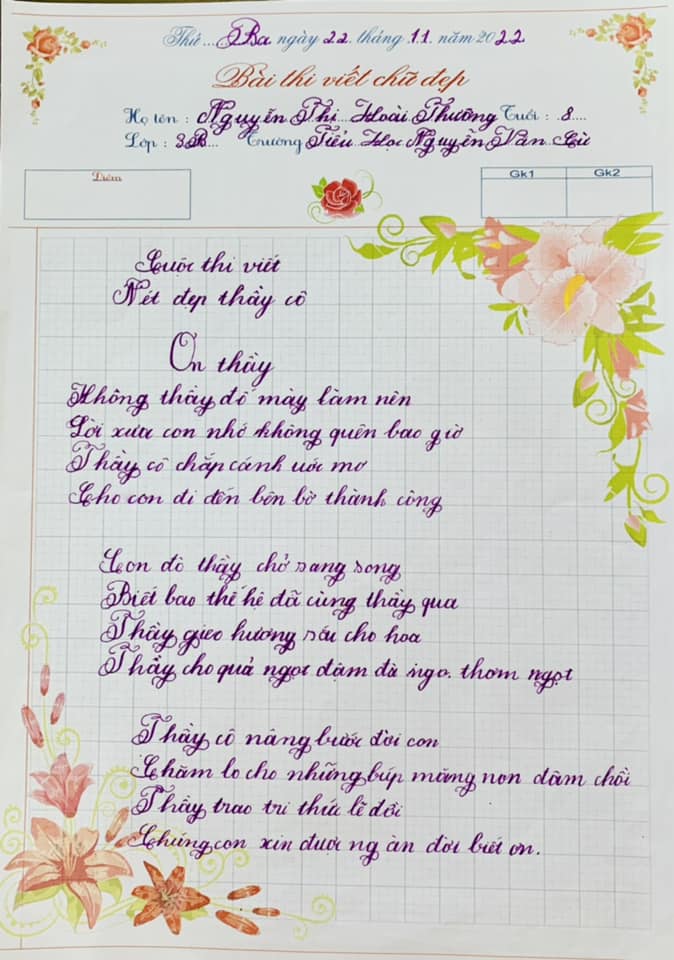 Thứ ... Ba ngày 22 tháng 11 năm 2022
Bài thi viết chữ đẹp
Họ tên : Nguyễn Thị Hoài Thương Tuổi : 8
Lớp : 3B Trường Tiểu Học Nguyễn Văn Cừ
Điểm
Gk1 Gk2
Cuộc thi viết
Nét đẹp thầy cô
Ơn thầy
Không thầy đố mày làm nên
Lời xưa con nhớ không quên bao giờ
Thầy cô chắp cánh ước mơ
Cho con đi đến bên bờ thành công
Con đò thầy chở sang song
Biết bao thế hệ đã cùng thầy qua
Thầy gieo hương sắc cho hoa
Thầy cho quả ngọt đậm đà thơm ngọt
Thầy cô nâng bước đời con
Chăm lo cho những búp măng non đâm chồi
Thầy trao tri thức lẽ đời
Chúng con xin được ng àn đời biết ơn.